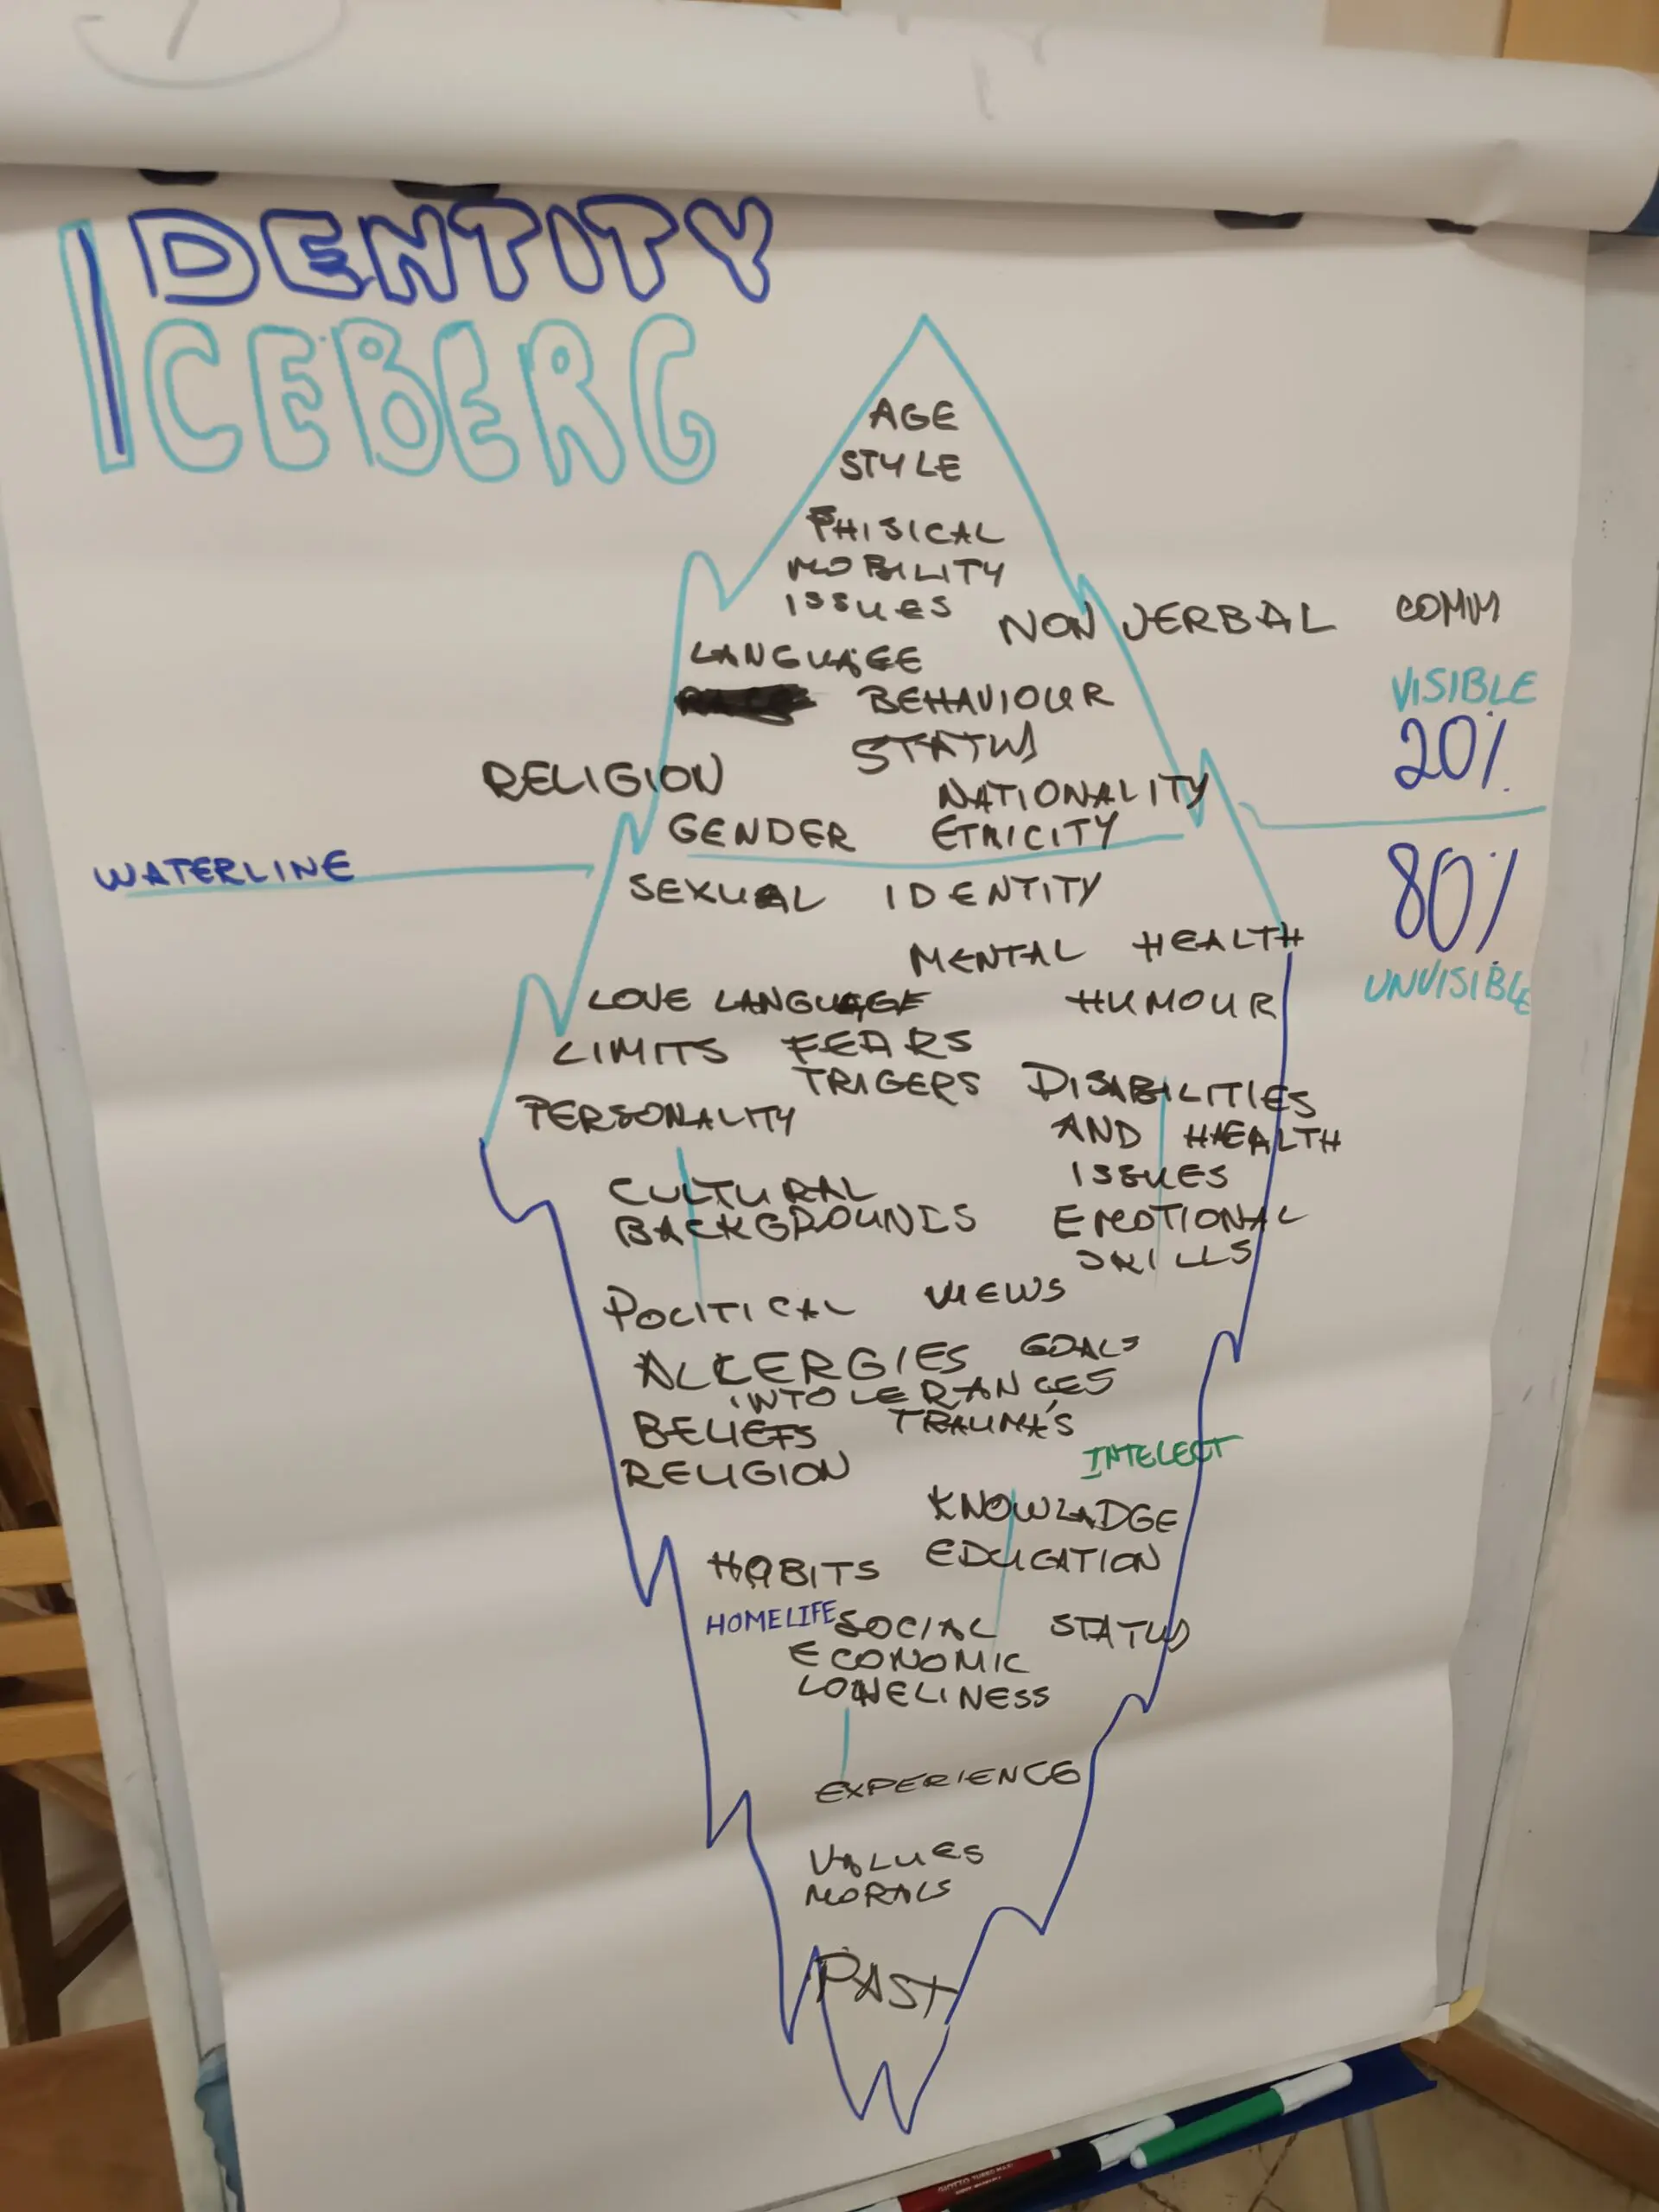 IDENTITY
ICEBERG
AGE
STYLE
PHISICAL
MOBILITY
ISSUES
NON VERBAL COMM
LANGUAGE
BEHAVIOUR
VISIBLE
20%
STATUS
RELIGION
NATIONALITY
GENDER ETNICITY
WATERLINE
80%
UNVISIBLE
SEXUAL IDENTITY
MENTAL HEALTH
LOVE LANGUAGE HUMOUR
LIMITS FEARS
TRIGERS
PERSONALITY
DISABILITIES
AND HEALTH
ISSUES
CULTURAL
BACKGROUNDS
EMOTIONAL
SKILLS
POLITICAL VIEWS
ALLERGIES GOALS
INTOLERANCES
BELIEFS TRAUMA'S
RELIGION
INTELECT
KNOWLADGE
HABITS EDUCATION
HOMELIFE SOCIAL STATUS
ECONOMIC
LONELINESS
EXPERIENCE
VALUES
MORALS
PAST